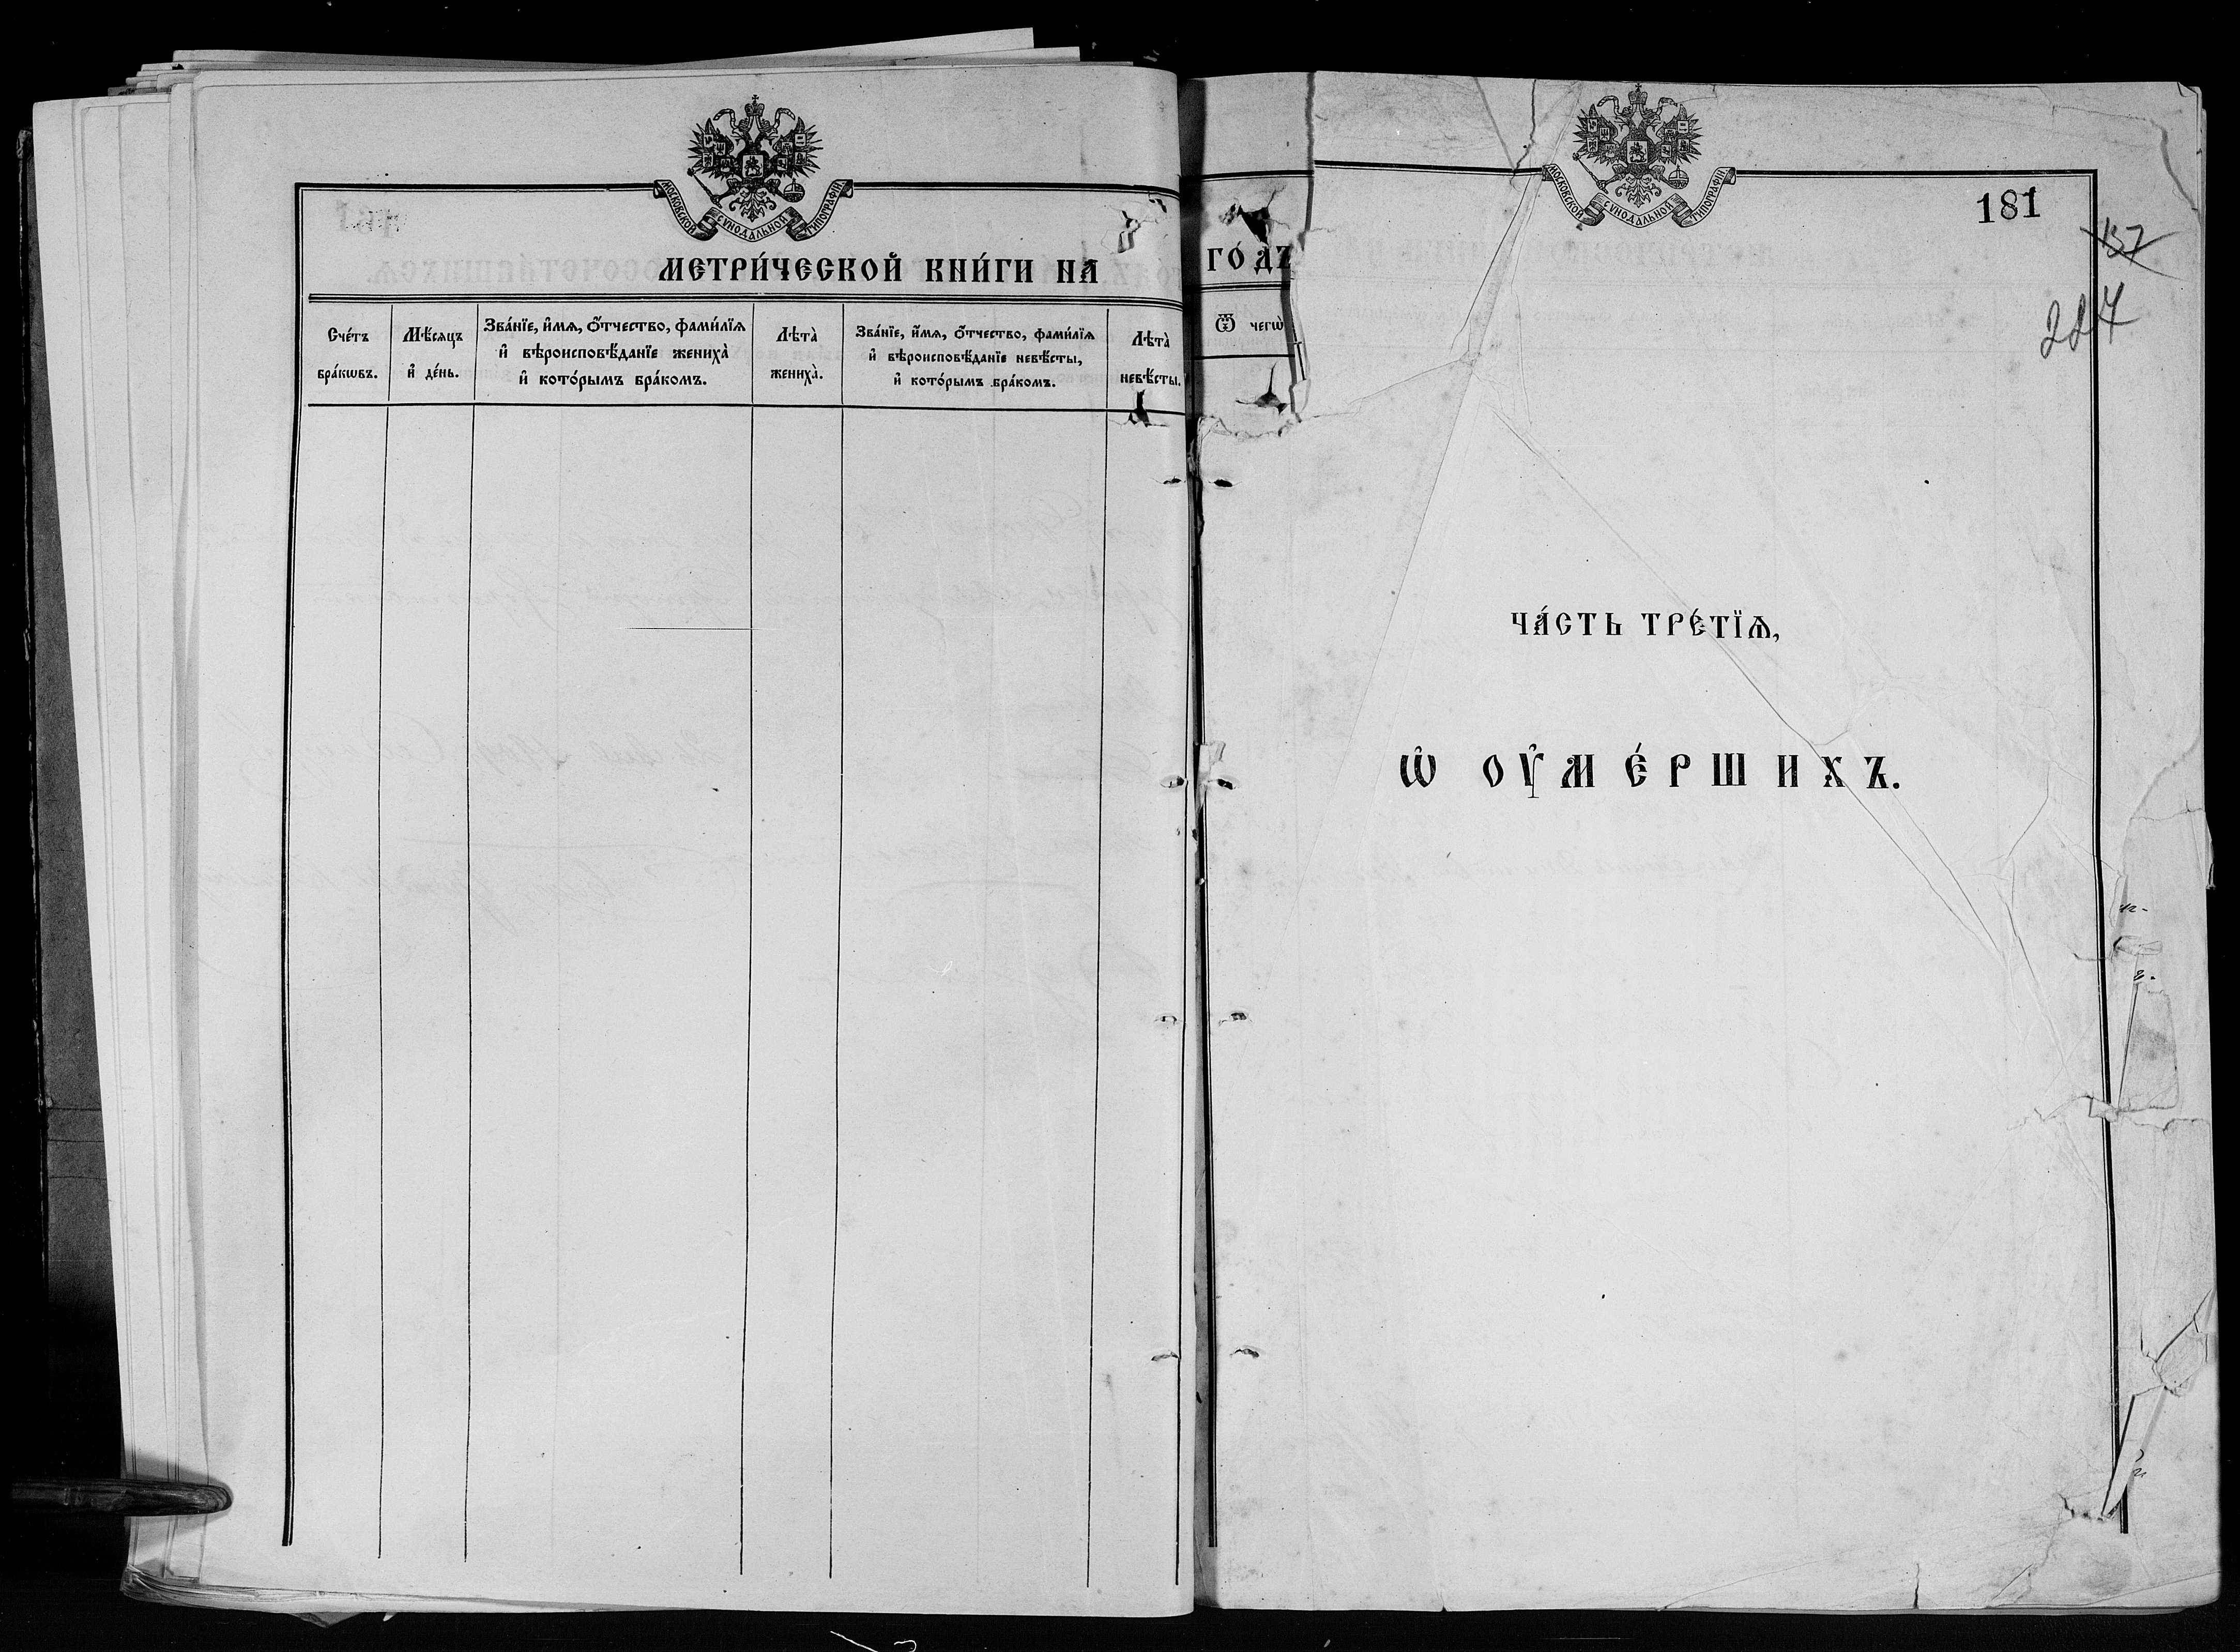 МОСКОВСКОЙ СѴНОДАЛЬНОЙ ТИПОГРАФІИ
МЕТРИ́ЧЕСКОЙ КНИ́ГИ НА
Сче́тъ
бра́кѡвъ.
Мѣ́сѧцъ
и҆ де́нь.
Зва́нїе, и҆́мѧ, ѻ҆́тчество, фами́лїѧ
и҆ вѣроисповѣ́данїе жениха̀
и҆ кото́рымъ бра́комъ.
Лѣта̀
жениха̀.
Зва́нїе, и҆́мѧ, ѻ҆́тчество, фами́лїѧ
и҆ вѣроисповѣ́данїе невѣ́сты,
и҆ кото́рымъ бра́комъ.
Лѣта̀
невѣ́сты.
ГО́ДЪ
Ѿ чегѡ̀
МОСКОВСКОЙ СѴНОДАЛЬНОЙ ТИПОГРАФІИ
181
157
227
ЧА́СТЬ ТРЕ́ТЇѦ,
Ѡ҆ ОУ҆МЕ́РШИХЪ.